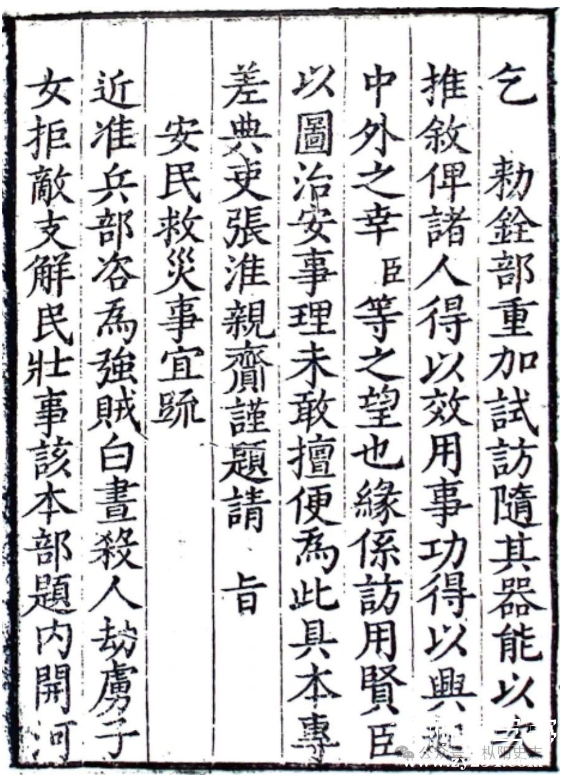 乞　勑銓部重加試訪隨其器能以
推敘俾諸人得以效用事功得以興
中外之幸臣等之望也緣係訪用賢臣
以圖治安事理未敢擅便為此具本專
差典吏張淮親齎謹題請　旨
安民救災事宜疏
近准兵部咨為強賊白晝殺人劫虜子
女拒敵支解民壯事該本部題內開河
公众号 · 枞阳史志